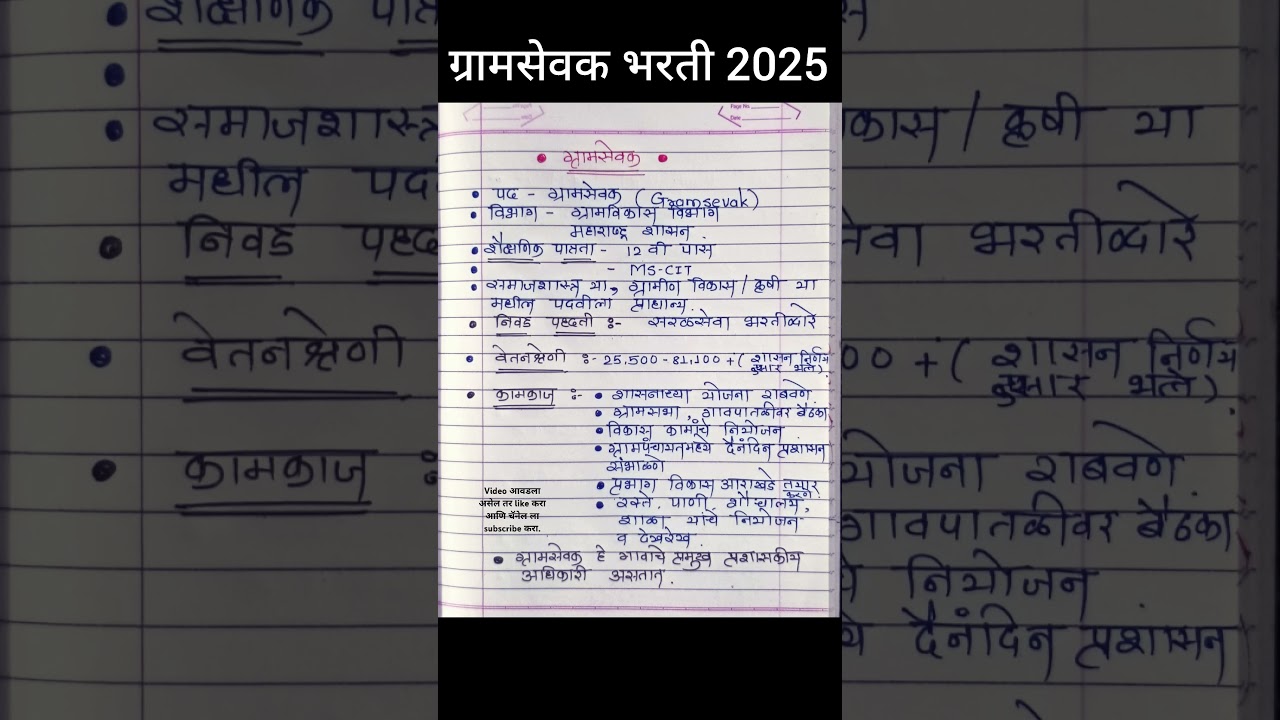 ग्रामसेवक भरती 2025
Page No.
Date
ग्रामसेवक
पद - ग्रामसेवक (Gramsevak)
विभाग - ग्रामविकास विभाग
महाराष्ट्र शासन.
शैक्षणिक पात्रता - 12 वी पास
- MS-CIT
समाजशास्त्र या, ग्रामीण विकास / कृषी या
मधील पदवीला प्राधान्य.
निवड पद्धती :- सरळसेवा भरतीद्वारे
वेतनश्रेणी :- 25,500 - 81,100 + ( शासन निर्णय
नुसार भत्ते).
कामकाज :- शासनाच्या योजना राबवणे.
ग्रामसभा, गावपातळीवर बैठका
विकास कामांचे नियोजन
ग्रामपंचायतमध्ये दैनंदिन प्रशासन
संभाळणे
प्रभाग विकास आराखडे तयार
करणे
रस्ते, पाणी, शौचालय,
शाळा यांचे नियोजन
व देखरेख.
ग्रामसेवक हे गावाचे प्रमुख प्रशासकीय
अधिकारी असतात.
Video आवडला
असेल तर like करा
आणि चॅनेल ला
subscribe करा.